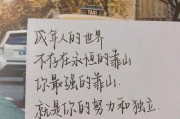 成年人的世界
不存在永恒的靠山
你最强的靠山
就是你的努力和独立.
TAXI